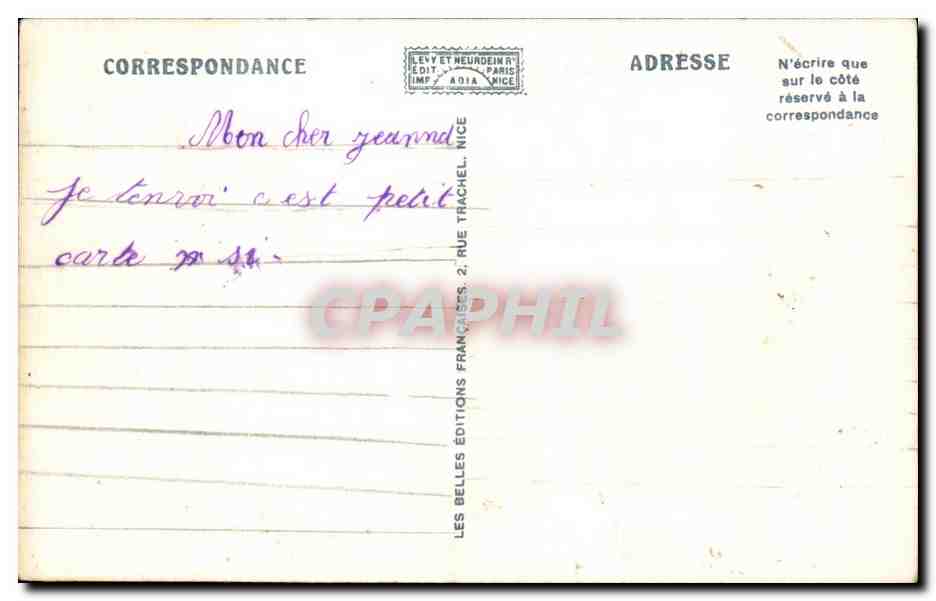 CORRESPONDANCE
LEVY ET NEURDEIN Rs
EDIT. PARIS
IMP. ADIA NICE
ADRESSE
N'écrire que
sur le côté
réservé à la
correspondance
Mon cher jeannd
Je tenvoi c est petit
carte si-
LES BELLES ÉDITIONS FRANÇAISES. 2, RUE TRACHEL. NICE
CPAPHIL